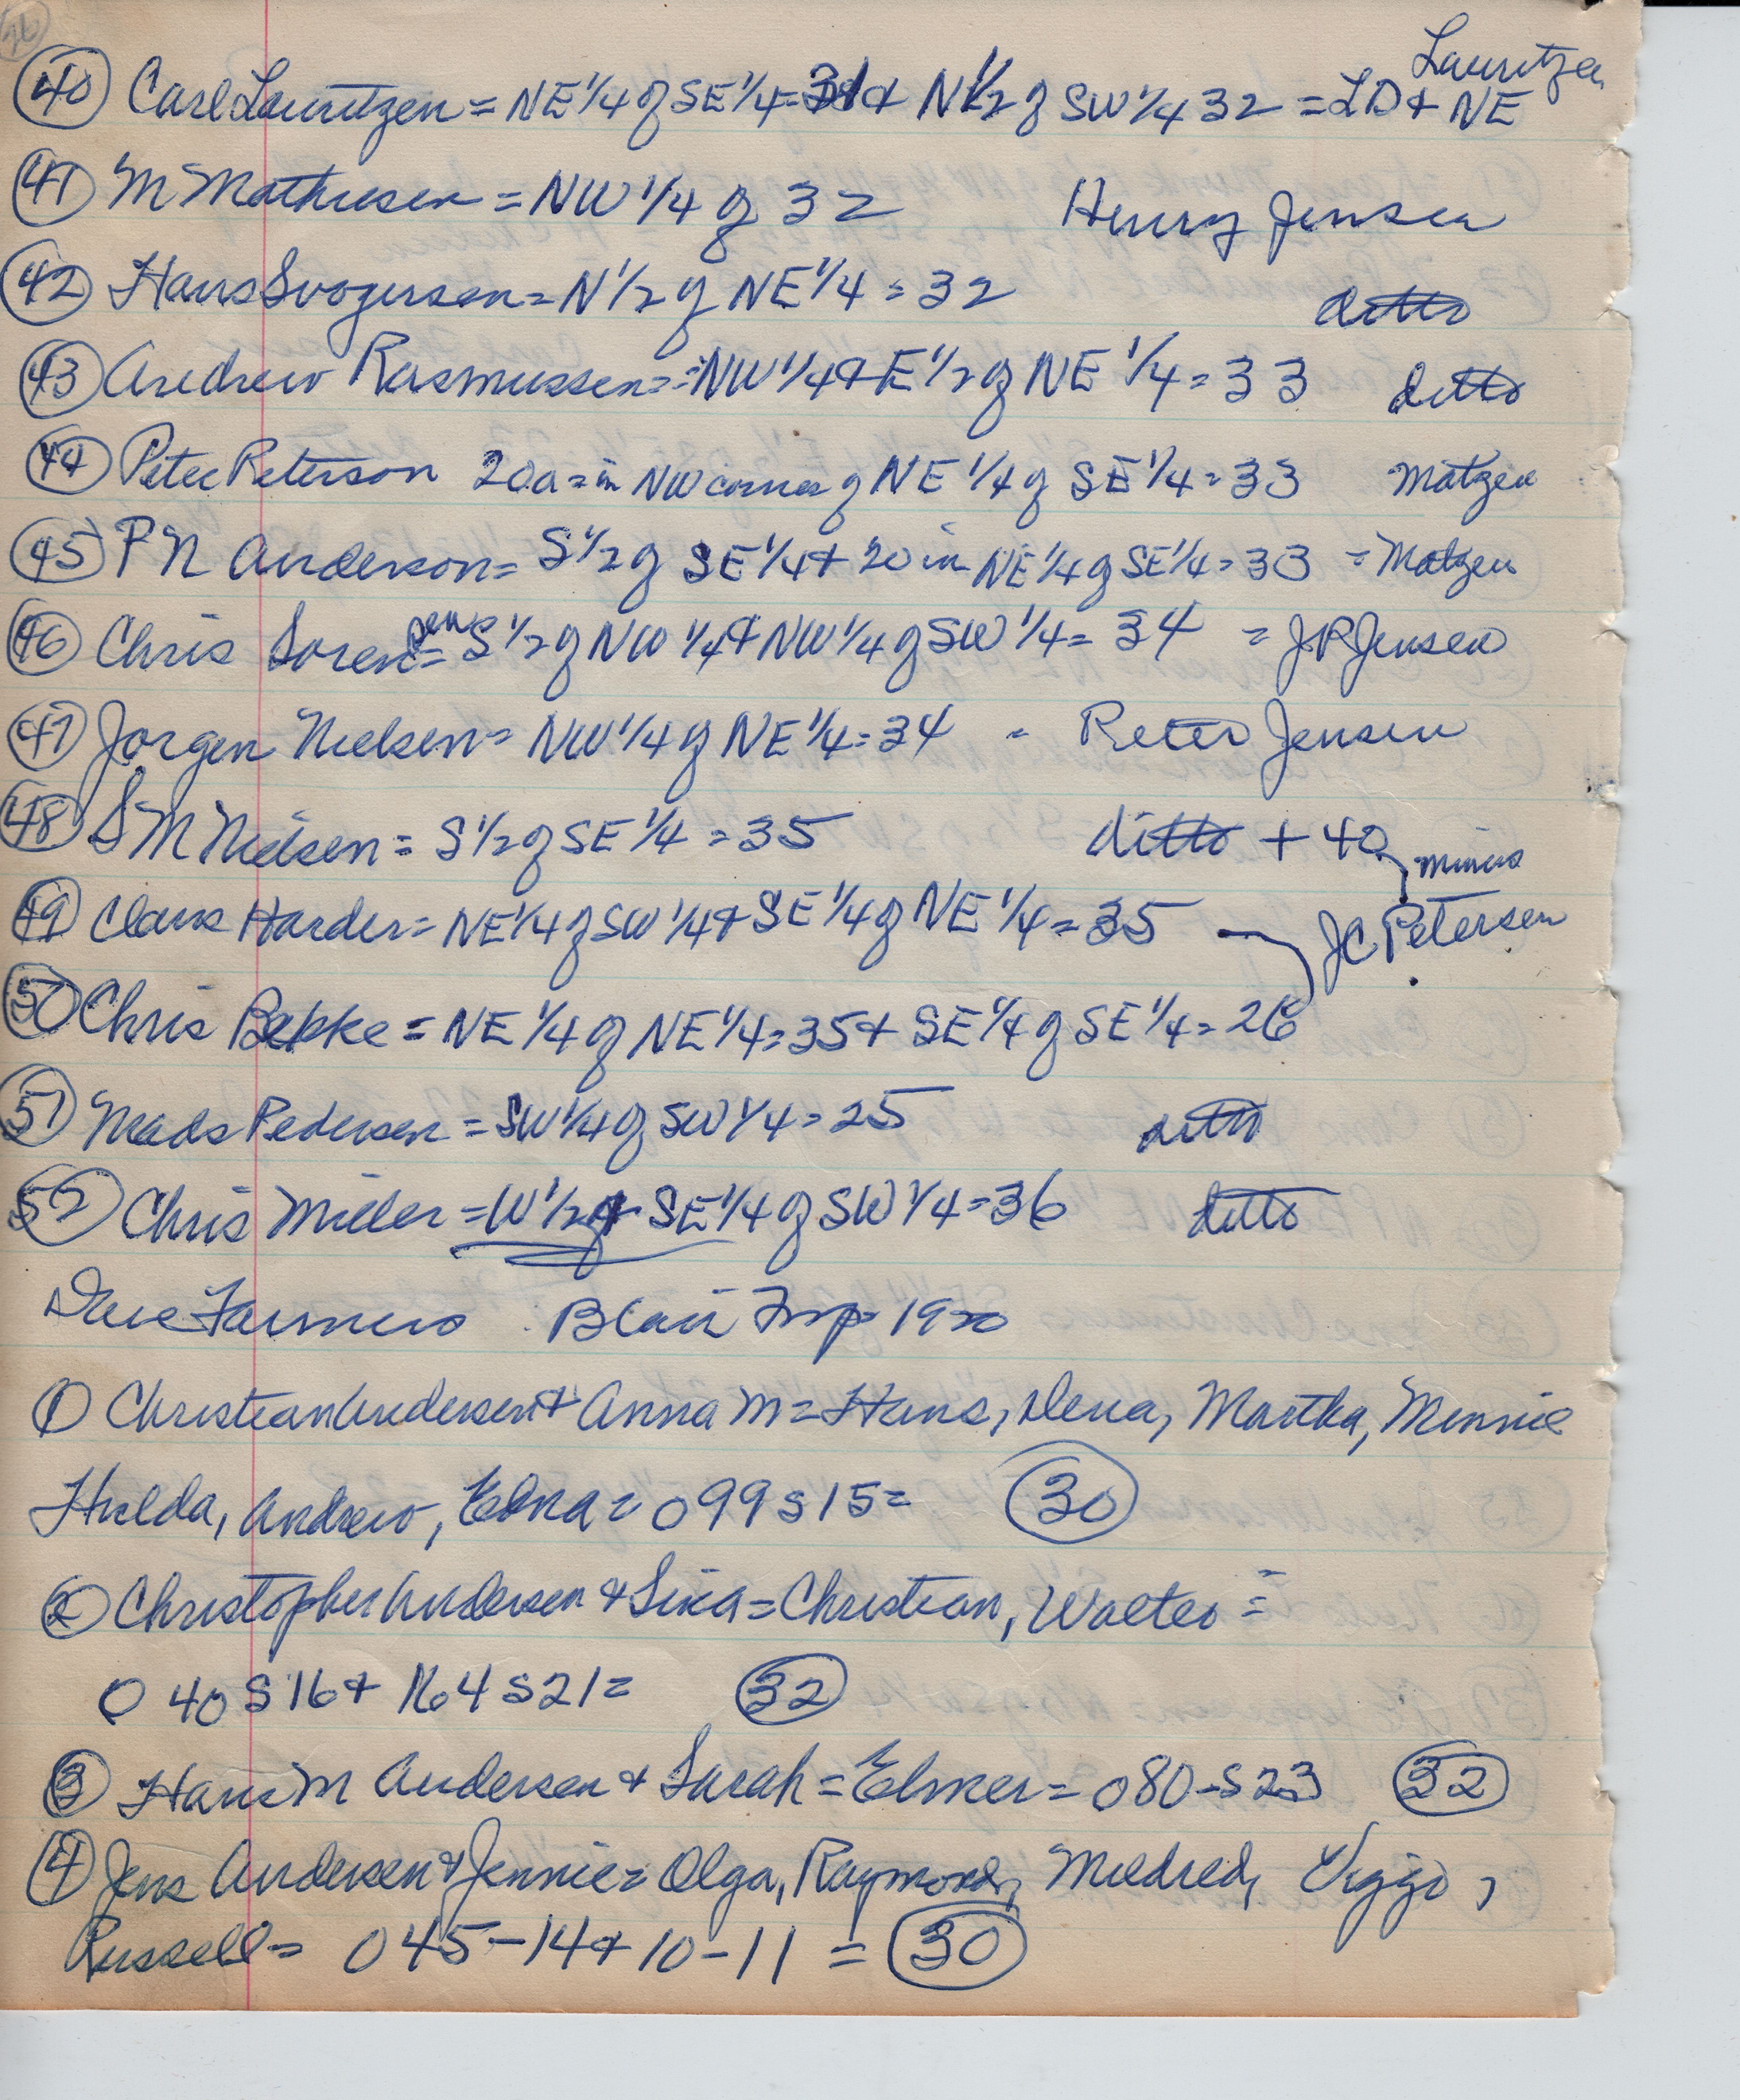 26
40 Carl Lauritzen = NE 1/4 of SE 1/4 = 31 + N 1/2 of SW 1/4 32 = LD + NE Lauritzen
41 M Mathiesen = NW 1/4 of 32 Henry Jensen
42 Hans Svogersen = N 1/2 of NE 1/4 = 32 ditto
43 Andrew Rasmussen = NW 1/4 + E 1/2 of NE 1/4 = 33 ditto
44 Peter Peterson 20a = in NW corner of NE 1/4 of SE 1/4 = 33 Matzen
45 P N Anderson = S 1/2 of SE 1/4 + 20 in NE 1/4 of SE 1/4 = 33 = Matzen
46 Chris Sorensen = S 1/2 of NW 1/4 + NW 1/4 of SW 1/4 = 34 = J P Jensen
47 Jorgen Nielsen = NW 1/4 of NE 1/4 = 34 - Peter Jensen
48 S M Nielsen = S 1/2 of SE 1/4 = 35 ditto + 40 minus
49 Claus Harder = NE 1/4 of SW 1/4 + SE 1/4 of NE 1/4 = 35 J C Petersen
50 Chris Bepke = NE 1/4 of NE 1/4 = 35 + SE 1/4 of SE 1/4 = 26
51 Mads Pedersen = SW 1/4 of SW 1/4 = 25 ditto
52 Chris Miller = W 1/2 + SE 1/4 of SW 1/4 = 36 ditto
Dane Farmers Blair Twp = 1920
1 Christian Andersen + Anna M = Hans, Dena, Martha, Minnie
Hulda, Andrew, Edna = O 99 S 15 = 30
2 Christopher Andersen + Sina = Christian, Walter =
O 40 S 16 + 164 S 21 = 32
3 Hans M Andersen + Sarah = Elmer = O 80 - S 23 32
4 Jens Andersen + Jennie = Olga, Raymond, Mildred, Viggo,
Russell = O 45 - 14 + 10 - 11 = 30